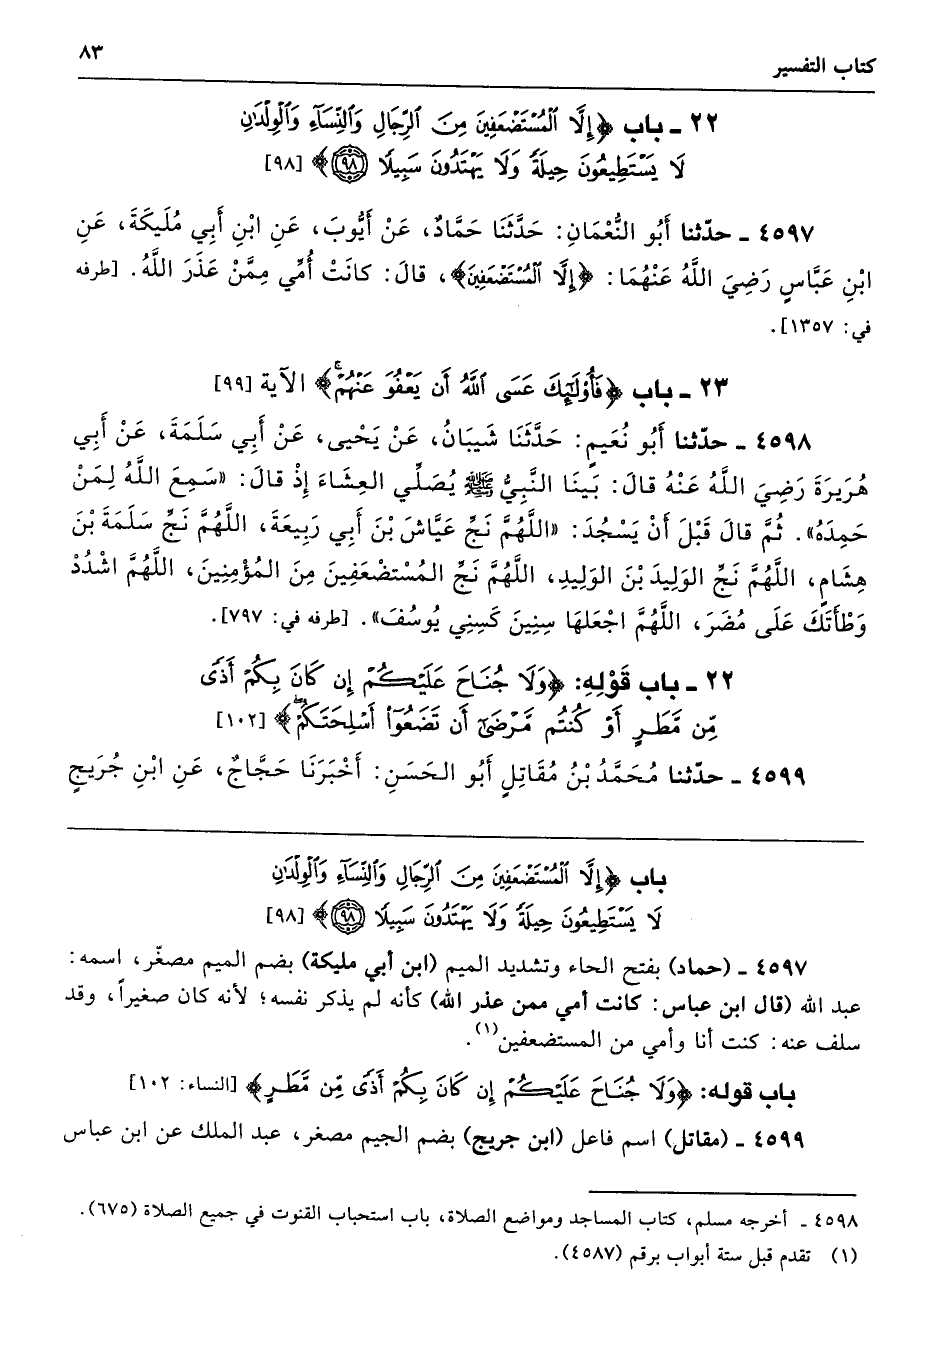 كتاب التفسير ٨٣
٢٢ ـ باب ﴿إِلَّا ٱلْمُسْتَضْعَفِينَ مِنَ ٱلرِّجَالِ وَٱلنِّسَآءِ وَٱلْوِلْدَٰنِ
لَا يَسْتَطِيعُونَ حِيلَةً وَلَا يَهْتَدُونَ سَبِيلًا ﴿٩٨﴾﴾ [٩٨]
٤٥٩٧ ـ حدّثنا أَبُو النُّعْمَانِ: حَدَّثَنَا حَمَّادٌ، عَنْ أَيُّوبَ، عَنِ ابْنِ أَبِي مُلَيكَةَ، عَنِ
ابْنِ عَبَّاسٍ رَضِيَ اللَّهُ عَنْهُمَا: ﴿إِلَّا ٱلْمُسْتَضْعَفِينَ﴾، قالَ: كانَتْ أُمِّي مِمَّنْ عَذَرَ اللَّهُ. [طرفه
في: ١٣٥٧].
٢٣ ـ باب ﴿فَأُوْلَٰٓئِكَ عَسَى ٱللَّهُ أَن يَعْفُوَ عَنْهُمْ﴾ الآية [٩٩]
٤٥٩٨ ـ حدّثنا أَبُو نُعَيمٍ: حَدَّثَنَا شَيبَانُ، عَنْ يَحْيى، عَنْ أَبِي سَلَمَةَ، عَنْ أَبِي
هُرَيرَةَ رَضِيَ اللَّهُ عَنْهُ قالَ: بَينَا النَّبِيُّ ﷺ يُصَلِّي العِشَاءَ إِذْ قالَ: «سَمِعَ اللَّهُ لِمَنْ
حَمِدَهُ». ثُمَّ قالَ قَبْلَ أَنْ يَسْجُدَ: «اللَّهُمَّ نَجِّ عَيَّاشَ بْنَ أَبِي رَبِيعَةَ، اللَّهُمَّ نَجِّ سَلَمَةَ بْنَ
هِشَامٍ، اللَّهُمَّ نَجِّ الوَلِيدَ بْنَ الوَلِيدِ، اللَّهُمَّ نَجِّ المُسْتَضْعَفِينَ مِنَ المُؤْمِنِينَ، اللَّهُمَّ اشْدُدْ
وَطْأَتَكَ عَلَى مُضَرَ، اللَّهُمَّ اجْعَلهَا سِنِينَ كَسِنِي يُوسُفَ». [طرفه في: ٧٩٧].
٢٢ ـ باب قَوْلِهِ: ﴿وَلَا جُنَاحَ عَلَيْكُمْ إِن كَانَ بِكُمْ أَذًى
مِّن مَّطَرٍ أَوْ كُنتُم مَّرْضَىٰٓ أَن تَضَعُوٓا۟ أَسْلِحَتَكُمْ﴾ [١٠٢]
٤٥٩٩ ـ حدّثنا مُحَمَّدُ بْنُ مُقَاتِلٍ أَبُو الحَسَنِ: أَخْبَرَنَا حَجَّاجٌ، عَنِ ابْنِ جُرَيجٍ
باب ﴿إِلَّا ٱلْمُسْتَضْعَفِينَ مِنَ ٱلرِّجَالِ وَٱلنِّسَآءِ وَٱلْوِلْدَٰنِ
لَا يَسْتَطِيعُونَ حِيلَةً وَلَا يَهْتَدُونَ سَبِيلًا ﴿٩٨﴾﴾ [٩٨]
٤٥٩٧ ـ (حماد) بفتح الحاء وتشديد الميم (ابن أبي مليكة) بضم الميم مصغّر، اسمه:
عبد الله (قال ابن عباس: كانت أمي ممن عذر الله) كأنه لم يذكر نفسه؛ لأنه كان صغيراً، وقد
سلف عنه: كنت أنا وأمي من المستضعفين(١).
باب قوله: ﴿وَلَا جُنَاحَ عَلَيْكُمْ إِن كَانَ بِكُمْ أَذًى مِّن مَّطَرٍ﴾ [النساء: ١٠٢]
٤٥٩٩ ـ (مقاتل) اسم فاعل (ابن جريج) بضم الجيم مصغر، عبد الملك عن ابن عباس
٤٥٩٨ ـ أخرجه مسلم، كتاب المساجد ومواضع الصلاة، باب استحباب القنوت في جميع الصلاة (٦٧٥).
(١) تقدم قبل ستة أبواب برقم (٤٥٨٧).